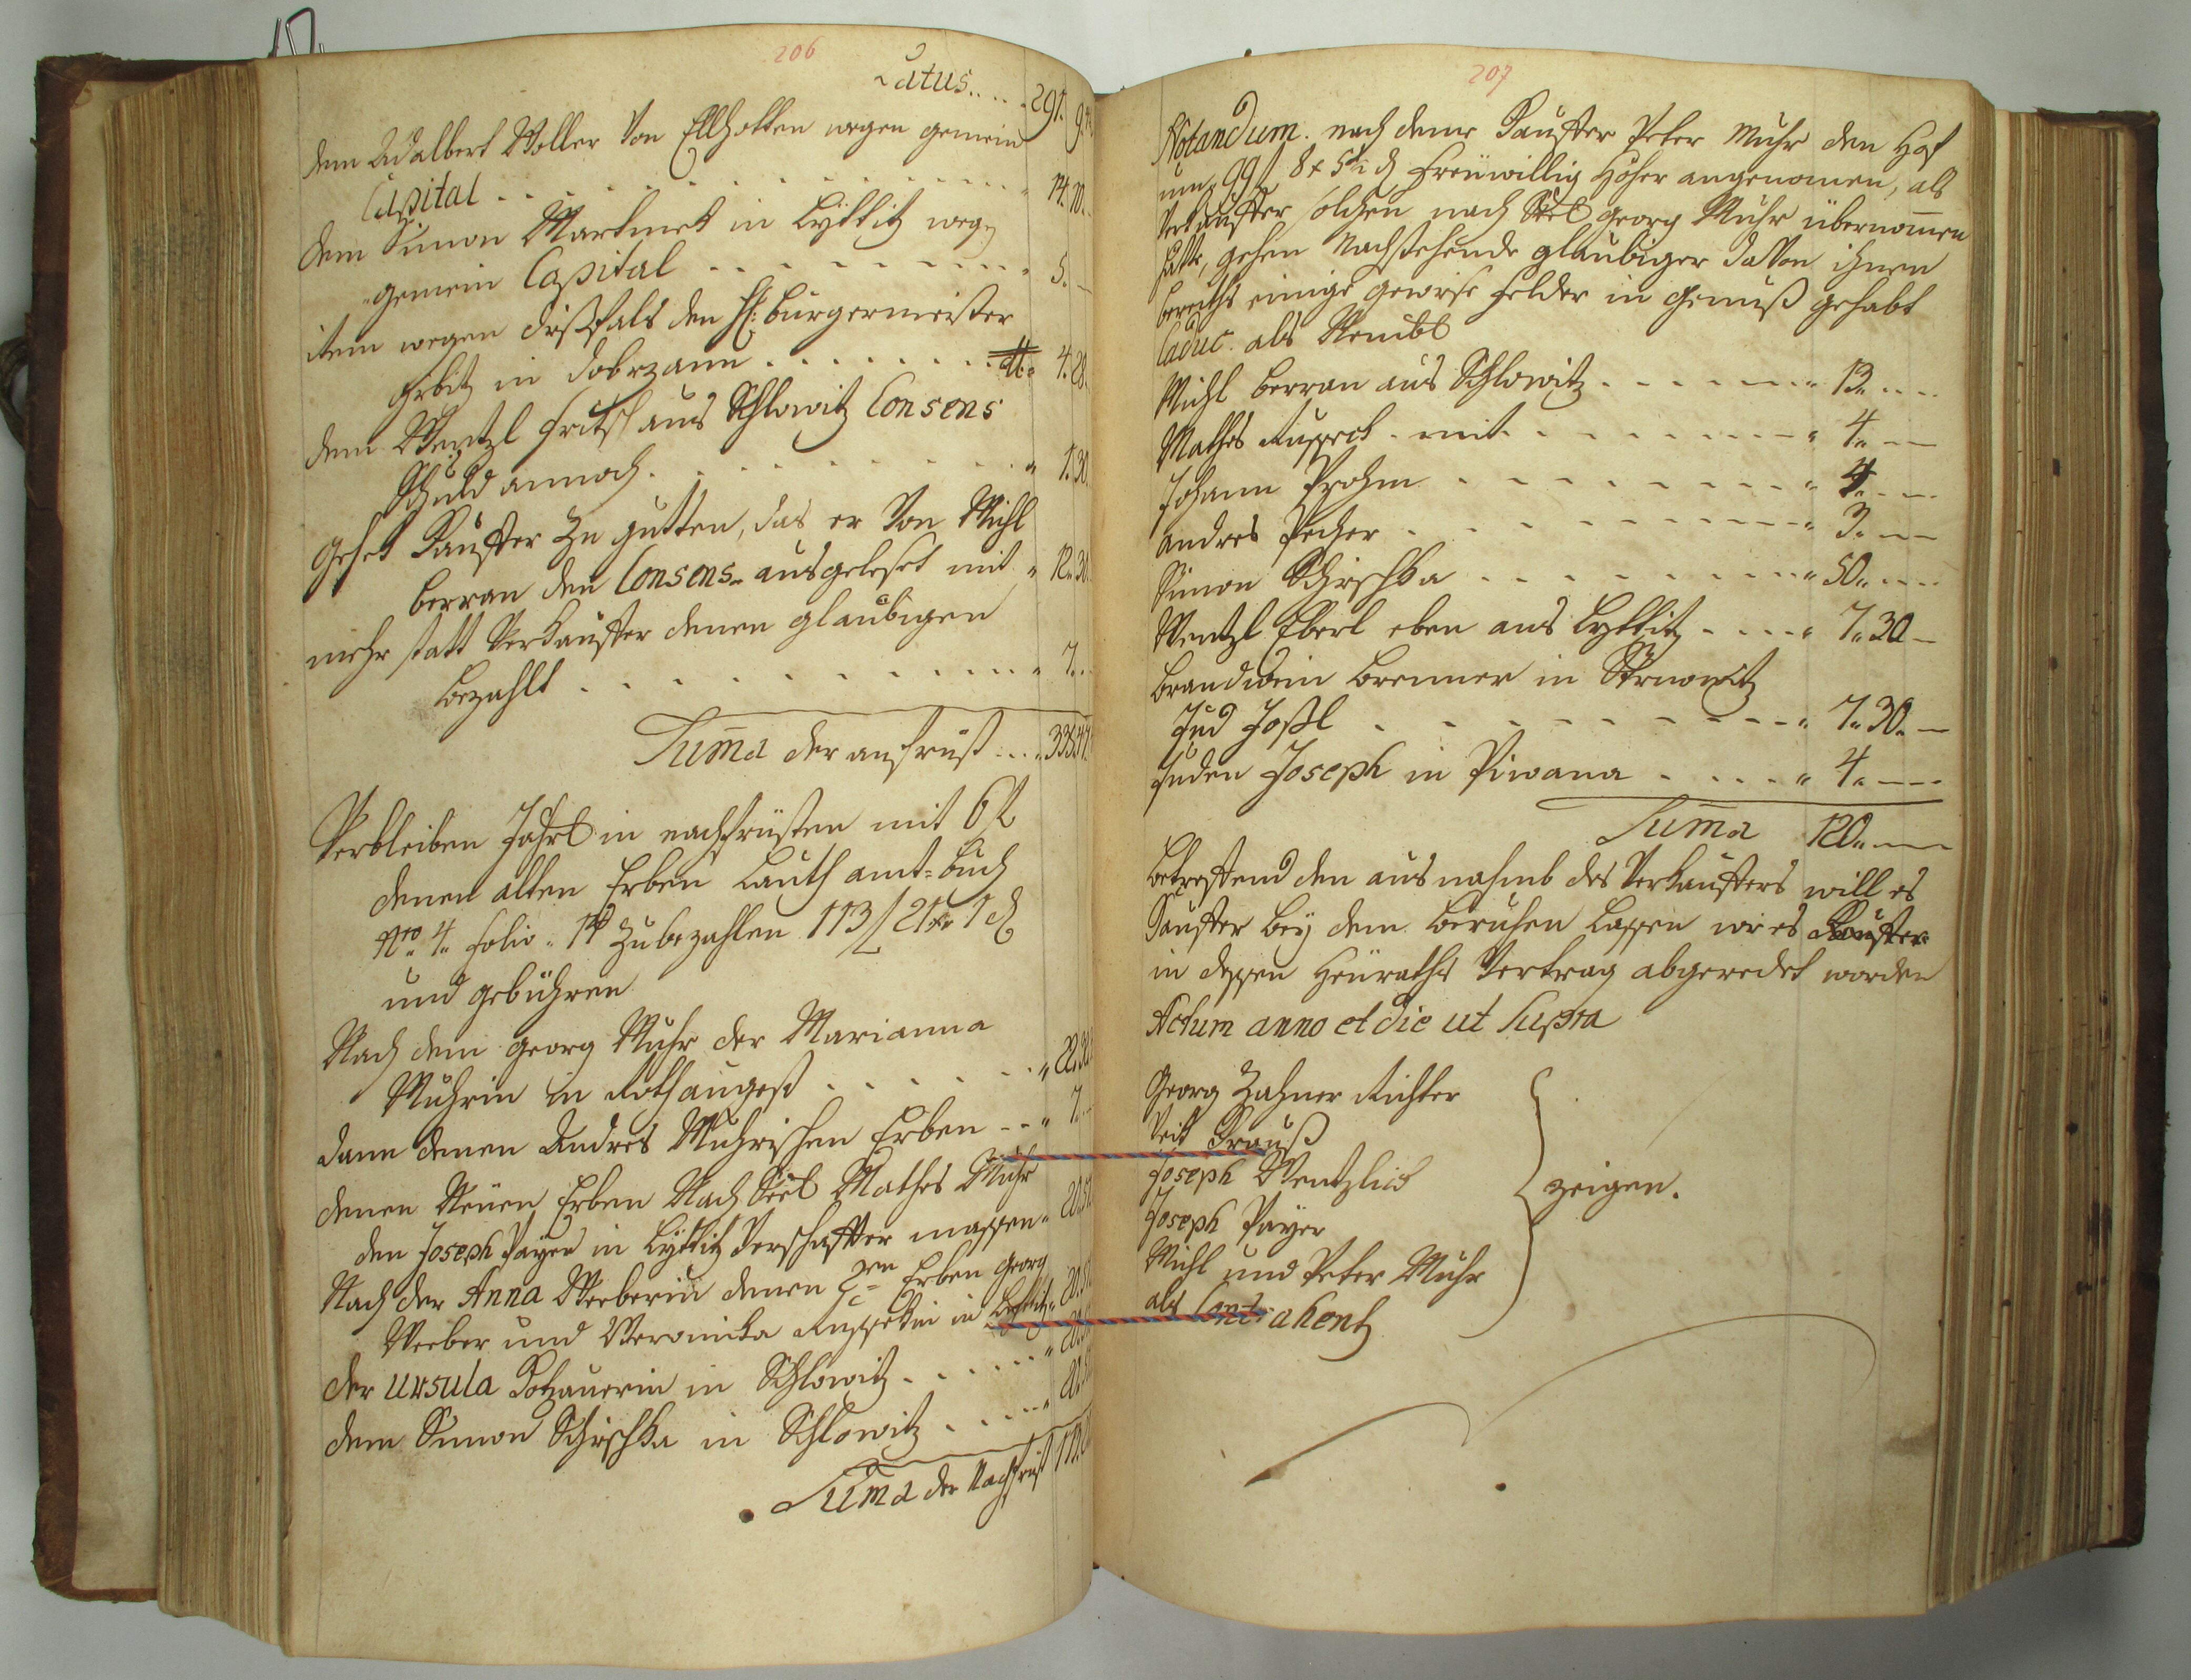 206
Latus..... 291. 9.
dem Adalbert Woller von Ellhotten wegen gemein
Capital . . . . . . . . . . 14. 10.
dem Simon Martinet in Lyttitz wegen
gemein Capital . . . . . . . . . . 5. —
item wegen dißfals den H: burgermeister
in dobrzann . . . . . . . . 4. 28.
dem Wentzl fritsch aus Schlowitz Consens
Schuld annoch . . . . . . . . . . 1. 30.
gehet Kauffer zu gutten, das er von Michl
berran den Consens ausgeleset mit 12. 30.
mehr statt Verkauffer denen glaubigen
bezahlt . . . . . . . . . . 7. —
Suma der anfrist ....
Verbleiben Jahrl in nachfristen mit 6 f
denen alten Erben Lauth amt-buch
Nro 4. folio. zu bezahlen 113 f 21 xr 1 d
und gebühren
Nach dem georg Muhr der Marianna
Muhrin in Rothaugest . . . . . .
dann denen Andres Muhrischen Erben . . 7. —
denen Neuen Erben Nach Seel Mathes Muhr
den Joseph Payer in Lyttitz Verschaffter massen
Nach der Anna Weeberin denen 2en Erben georg
Weeber und Veronicka in Lyttitz
der Ursula Kotzauerin in Schlowitz . . . .
dem Simon Schischka in Schlowitz . . . .
Suma der Nachfrist
207
Notandum. nach deme Kauffer Peter Muhr den Hof
um 99 f 8 x 5½ d freuwillig höher angenomen, als
Verkauffer solchen nach Seel georg Muhr übernomen
hatte, gehen Nachstehende glaubiger da von ihnen
bereiths einige gewise felder in genuß gehabt
Caduc. als Nembl
Michl berran aus Schlowitz . . . . . . 13. . . .
Mathes . mit . . . . . . . . . 4. — —
Johann Prohm . . . . . . . . . 4. — —
andres Pecher . . . . . . . . . 3. — —
Simon Schischka . . . . . . . . . 50. . . .
Wentzl Eberl eben aus Lyttitz . . . . 7. 30 —
brandwein brenner in
Jud Joßl . . . . . . . . . . 7. 30. —
Juden Joseph in Piwana . . . . . 4. — —
Suma 120. — —
betreffend den ausnahmb des Verkauffers will es
Kauffer bey dem beruhen lassen wie es Kauffer
in dessen Heuraths Vertrag abgeredet worden
Actum anno et die ut supra
Georg Zahner Richter
Veit Krauß
Joseph Wentzlick
zeigen.
Joseph Payer
Michl und Peter Muhr
als Contrahenten